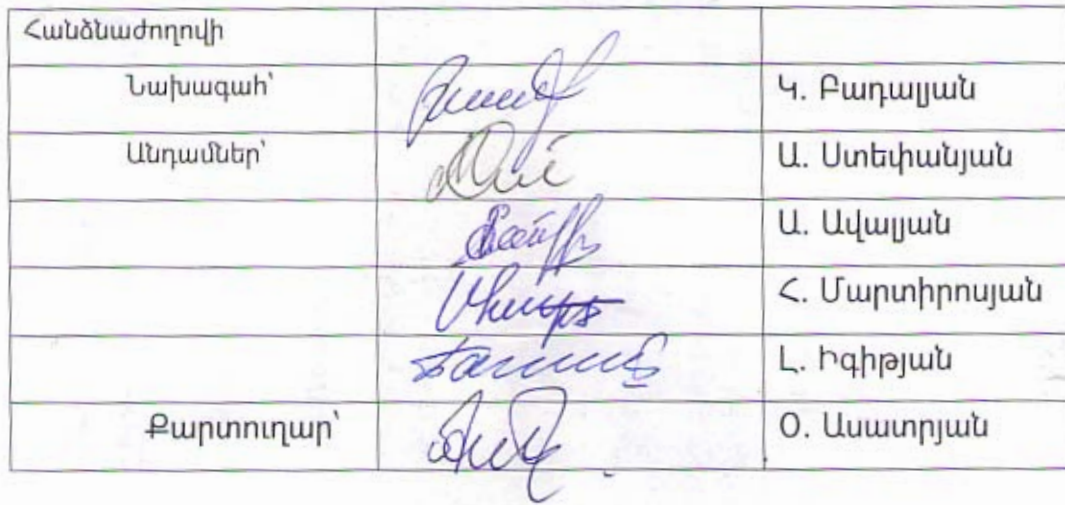 Հանձնաժողովի
Նախագահ՝ Կ. Բադալյան
Անդամներ՝ Ա. Ստեփանյան
Ա. Ավալյան
Հ. Մարտիրոսյան
Լ. Իգիթյան
Քարտուղար՝ Օ. Ասատրյան